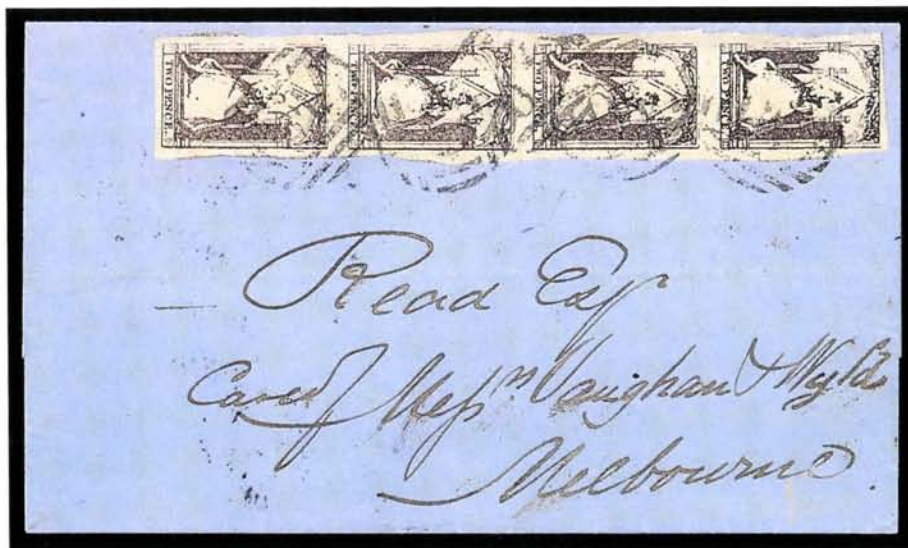 TWO PENCE
TWO PENCE
TWO PENCE
TWO PENCE
Read Esq
Care of Messrs Vaughan & Wyld
Melbourne